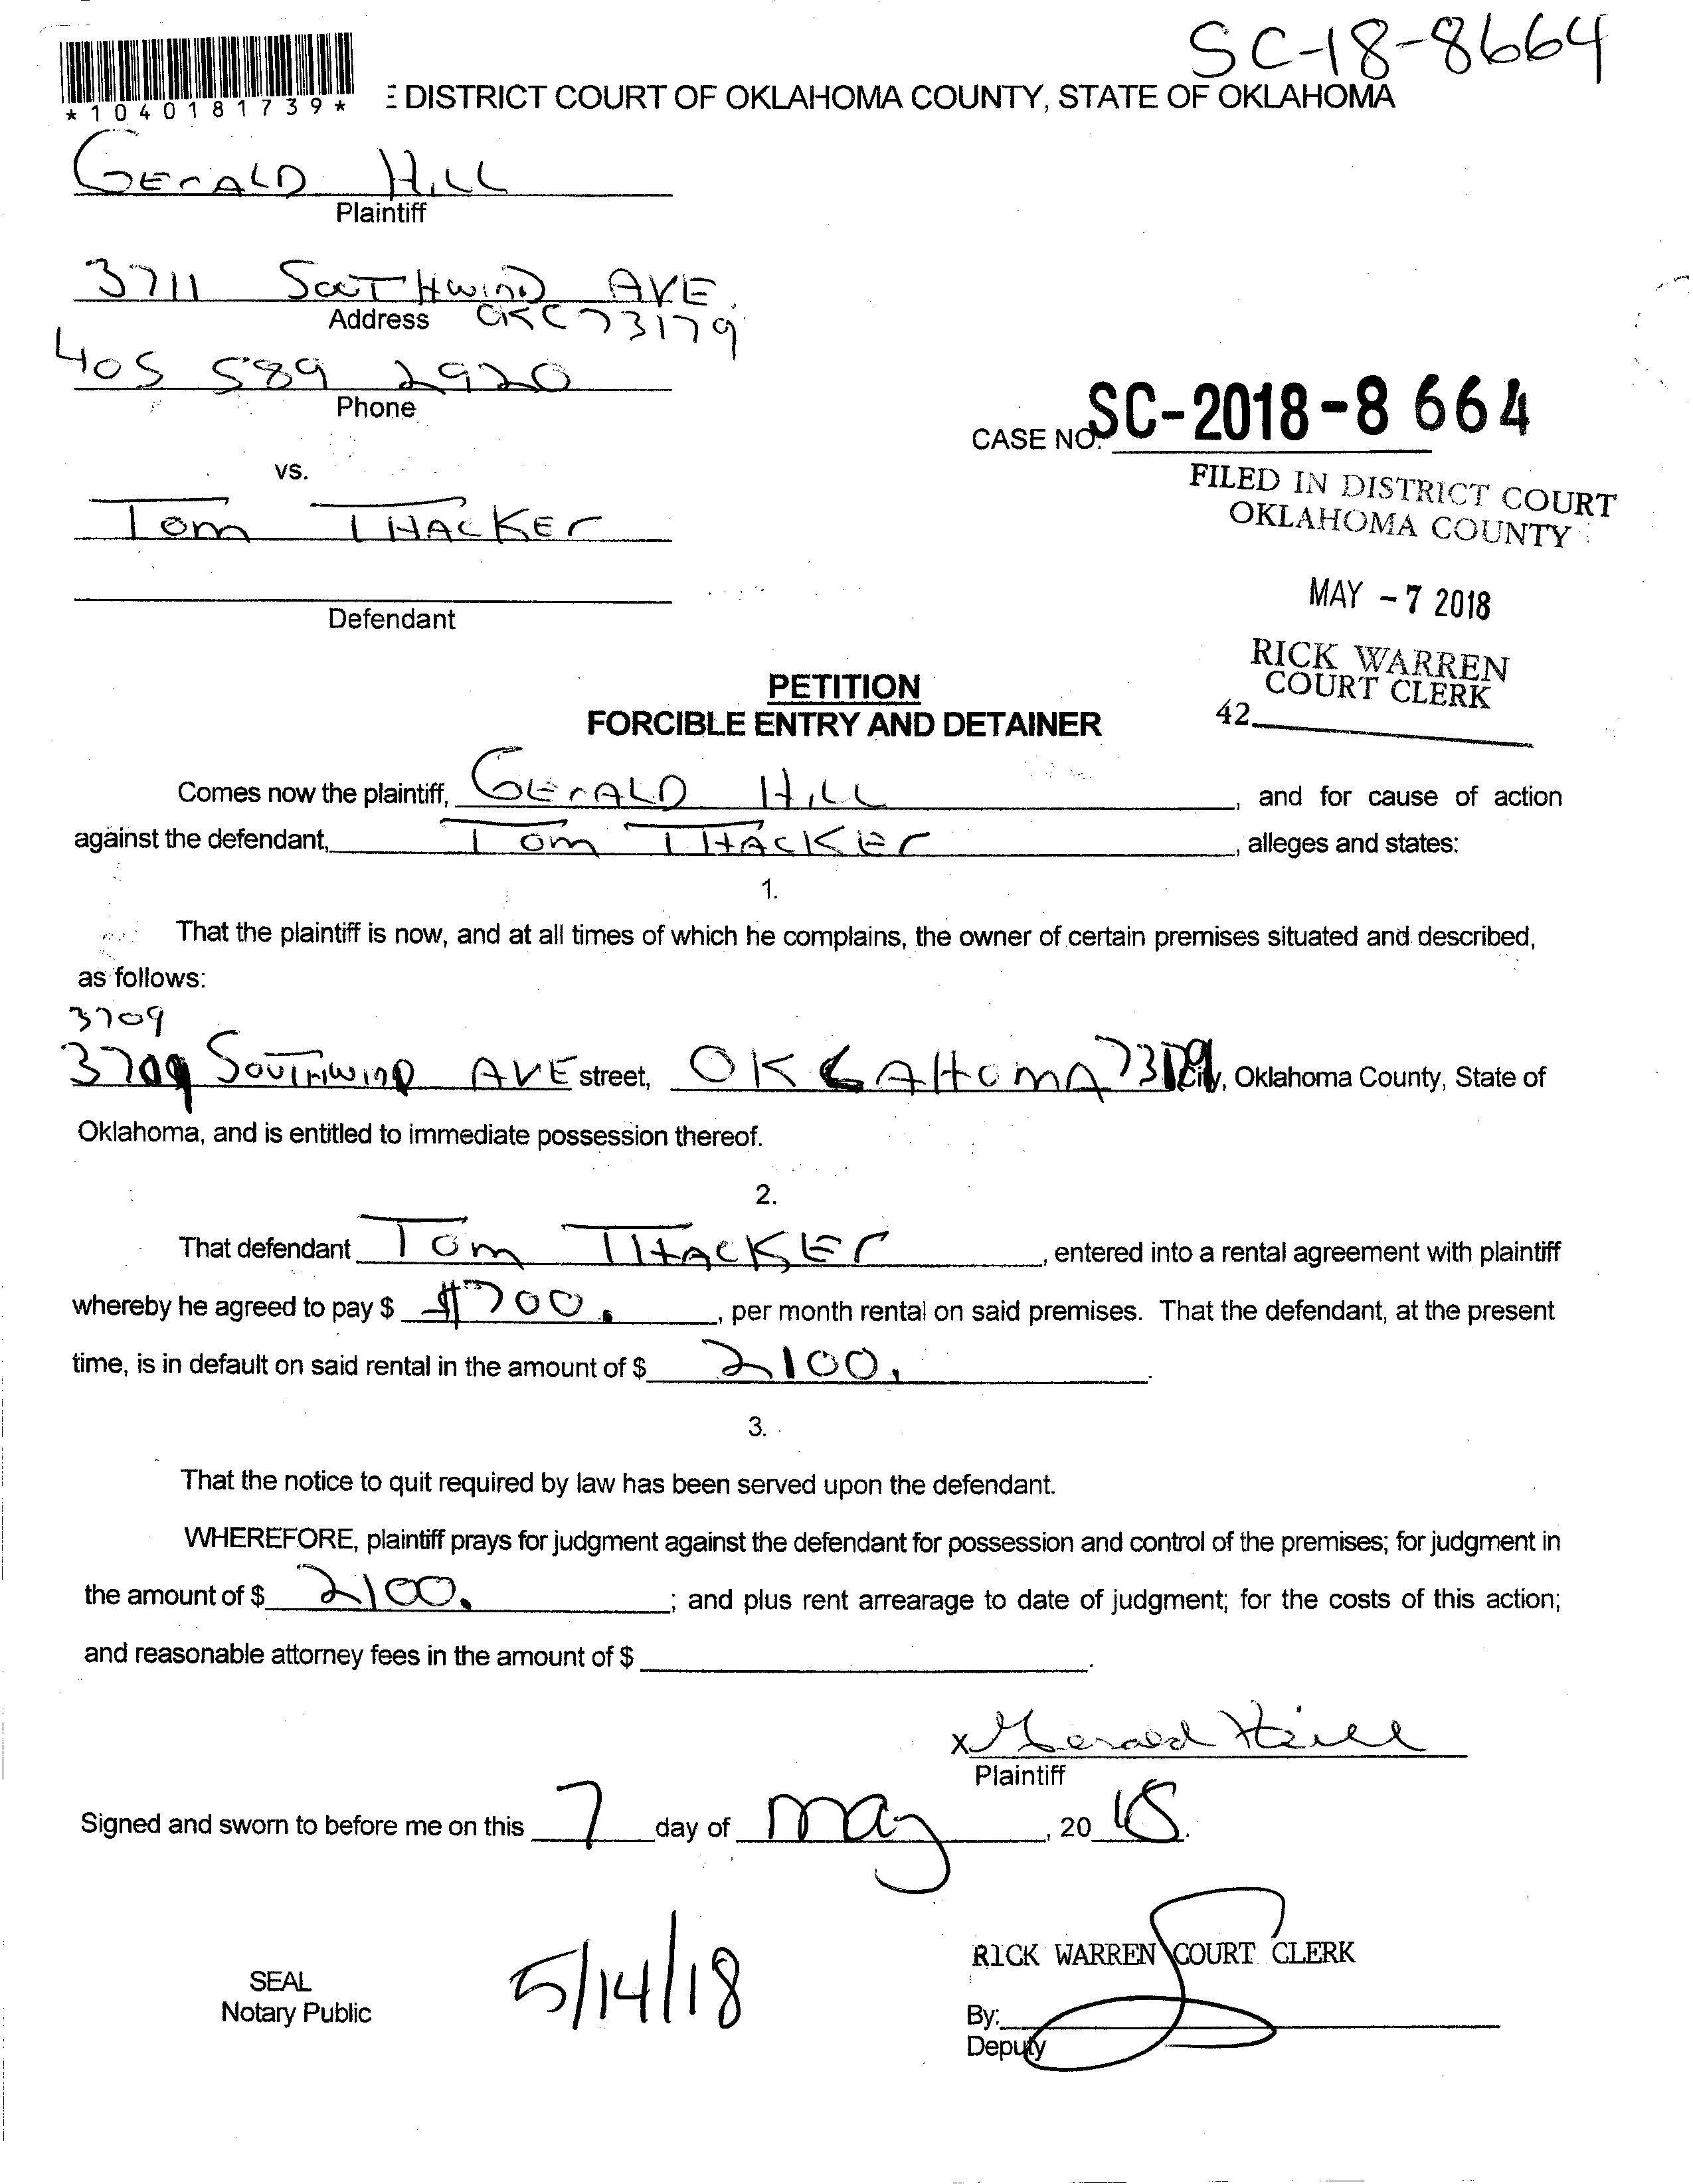 SC-18-8664
*1040181739*
E DISTRICT COURT OF OKLAHOMA COUNTY, STATE OF OKLAHOMA
GErALD HiLL
Plaintiff
3711 SouTHwinD AVE.
Address OKC 73179
405 589 2920
Phone
CASE NO. SC-2018-8664
vs.
FILED IN DISTRICT COURT
OKLAHOMA COUNTY
Tom THACKEr
MAY -7 2018
Defendant
RICK WARREN
COURT CLERK
42
PETITION
FORCIBLE ENTRY AND DETAINER
Comes now the plaintiff, GErALD HiLL, and for cause of action
against the defendant, Tom THACKEr, alleges and states:
1.
That the plaintiff is now, and at all times of which he complains, the owner of certain premises situated and described,
as follows:
3709
3709 SouTHwinD AVE street, OKLAHomA 73179 City, Oklahoma County, State of
Oklahoma, and is entitled to immediate possession thereof.
2.
That defendant Tom THACKEr, entered into a rental agreement with plaintiff
whereby he agreed to pay $ $700., per month rental on said premises. That the defendant, at the present
time, is in default on said rental in the amount of $ 2100..
3.
That the notice to quit required by law has been served upon the defendant.
WHEREFORE, plaintiff prays for judgment against the defendant for possession and control of the premises; for judgment in
the amount of $ 2100.; and plus rent arrearage to date of judgment; for the costs of this action;
and reasonable attorney fees in the amount of $ .
x Gerald Hill
Plaintiff
Signed and sworn to before me on this 7 day of may, 20 18.
RICK WARREN COURT CLERK
SEAL
Notary Public
5/14/18
By:
Deputy